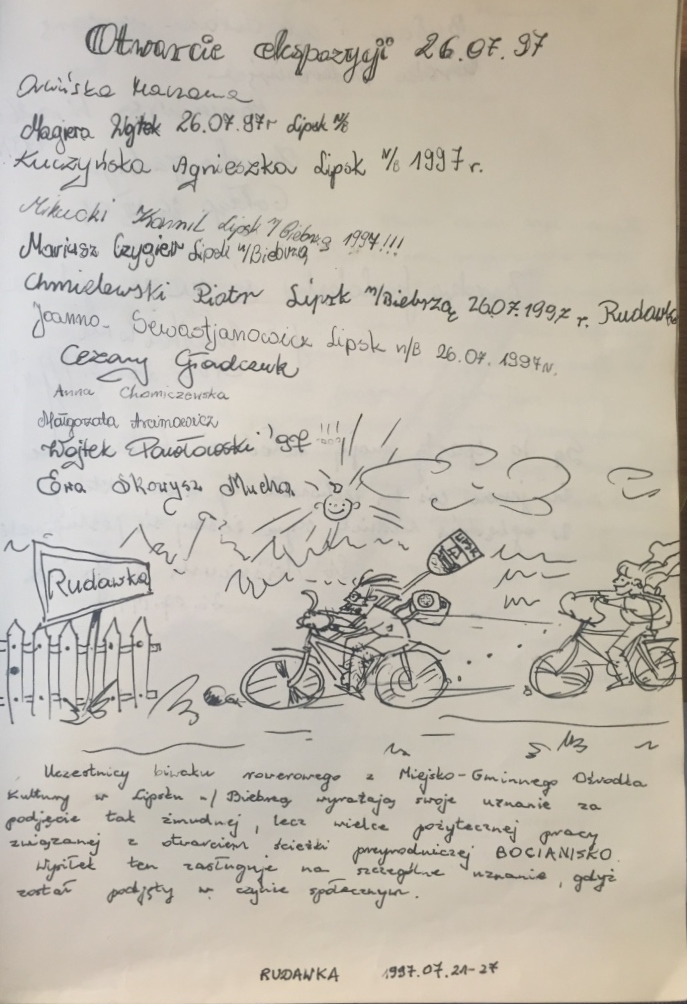 Otwarcie ekspozycji 26.07.97
Magiera Wojtek 26.07.97r Lipsk n/B
Kuczyńska Agnieszka Lipsk n/B 1997 r.
Mikucki Kamil Lipsk n/Biebrzą 1997!!!
Mariusz Czygier Lipsk n/Biebrzą
Chmielewski Piotr Lipsk n/Biebrzą 26.07.1997 r. Rudawka
Joanna Sewastjanowicz Lipsk n/B 26.07.1997r.
Cezary
Anna Chomiczewska
Małgorzata Arcimowicz
Wojtek Pawłowski '97 !!!
Ewa Skowysz Mucha
Rudawka
LIPSK
Uczestnicy biwaku rowerowego z Miejsko-Gminnego Ośrodka
Kultury w Lipsku n/Biebrzą wyrażają swoje uznanie za
podjęcie tak żmudnej, lecz wielce pożytecznej pracy
związanej z otwarciem ścieżki przyrodniczej BOCIANISKO.
Wysiłek ten zasługuje na szczególne uznanie, gdyż
został podjęty w czynie społecznym.
RUDAWKA 1997.07.21-27